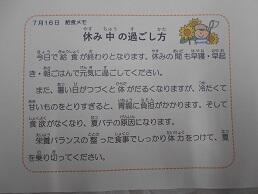 ７月１６日　給食メモ
休み中の過ごし方
今日で給食が終わりとなります。休みの間も早寝・早起
き・朝ごはんで元気に過ごしてください。
また、暑い日がつづくと体がだるくなりますが、冷たくて
甘いものをとりすぎると、胃腸に負担がかかります。そして
食欲がなくなり、夏バテの原因になります。
栄養バランスの整った食事でしっかり体力をつけて、夏
を乗り切ってください。